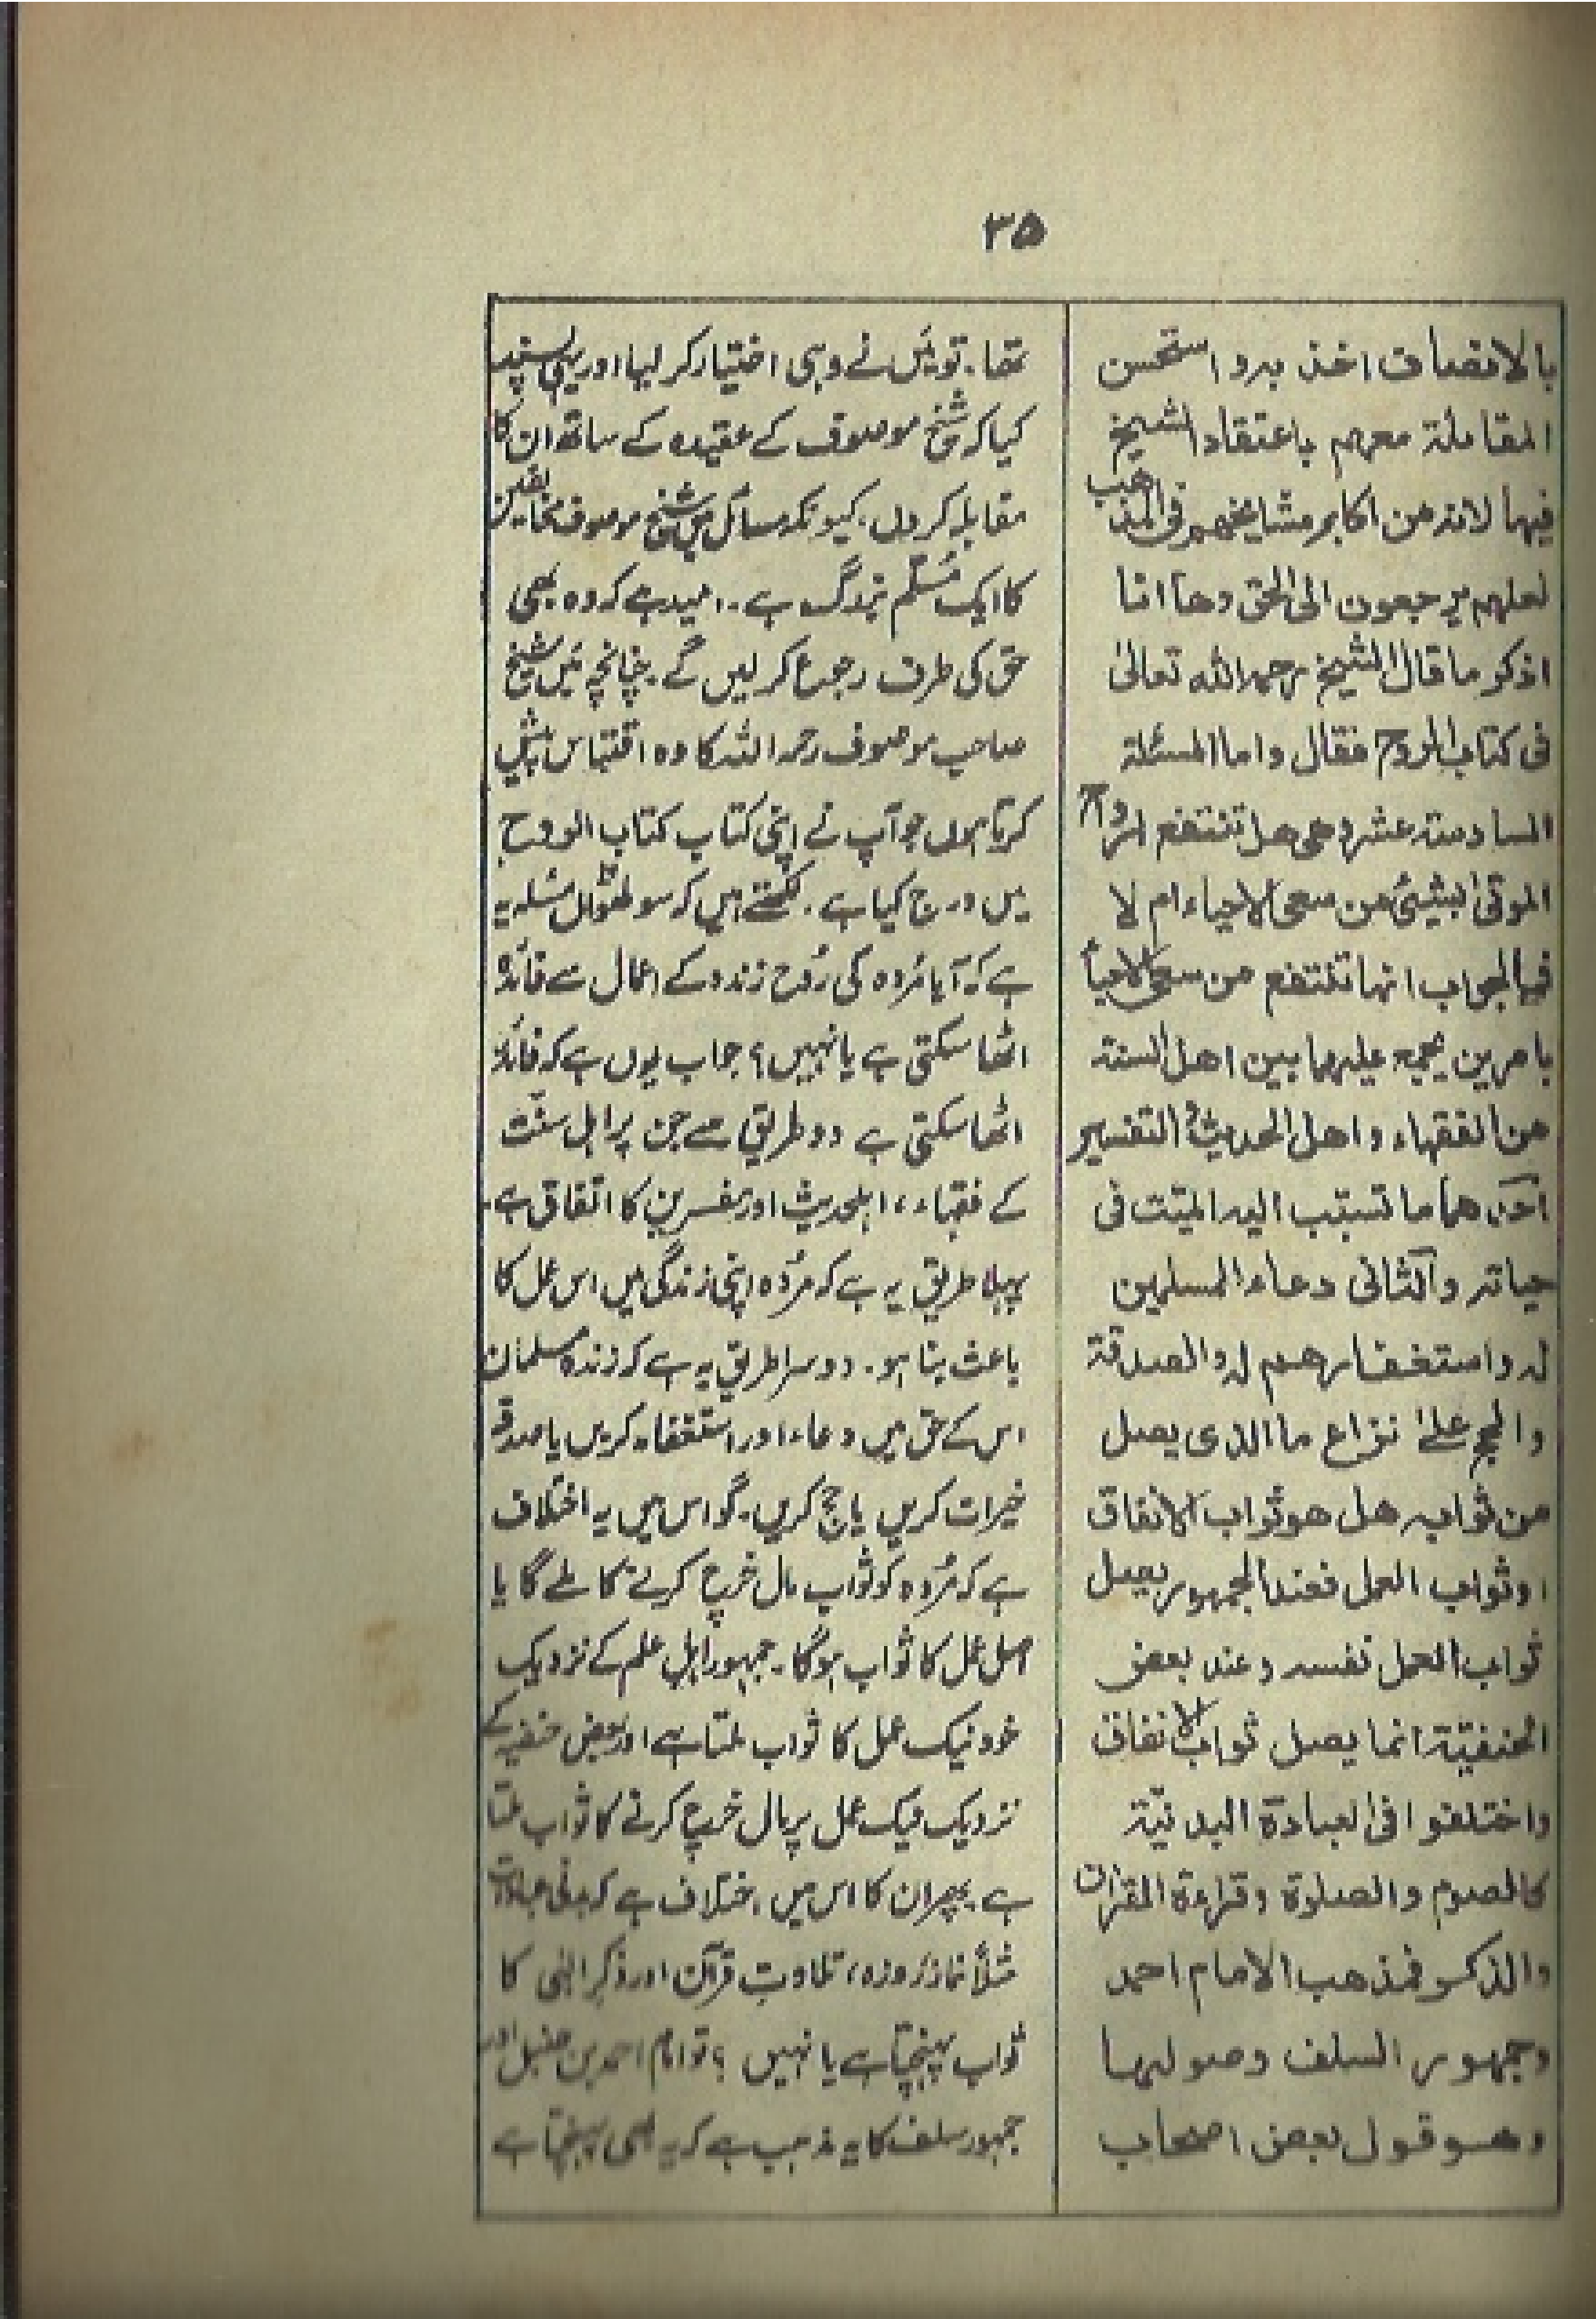 ۳۵
بالانصاف اخذ بہ واستحسن
المقابلۃ معہم باعتقاد الشیخ
فیہا لانہ من اکابر مشایخہم فی المذاھب
لعلہم یرجعون الی الحق وھا انا
اذکر ما قال الشیخ رحمہ اللہ تعالیٰ
فی کتاب الروح فقال واما المسئلۃ
السادسۃ عشر وھی ھل تنتفع ارواح
الموتیٰ بشیئ من سعی الاحیاء ام لا
فالجواب انہا تنتفع من سعی الاحیاء
بامرین یجمع علیہما بین اھل السنۃ
من الفقہاء واھل الحدیث والتفسیر
احدھما ما تسبّب الیہ المیّت فی
حیاتہ والثانی دعاء المسلمین
لہ واستغفارھم لہ والصدقۃ
والحج علیٰ نزاع ما الذی یصل
من ثوابہ ھل ھو ثواب الانفاق
او ثواب العمل فعند الجمہور یصل
ثواب العمل نفسہ وعند بعض
الحنفیّۃ انما یصل ثواب الانفاق
واختلفوا فی العبادۃ البدنیّۃ
کالصوم والصلوۃ وقراءۃ القران
والذکر فمذھب الامام احمد
وجمہور السلف وصولہا
وھو قول بعض اصحاب
تھا۔ تو مَیں نے وہی اختیار کر لیا اور یہی پسند
کیا کہ شیخ موصوف کے عقیدہ کے ساتھ ان کا
مقابلہ کروں، کیونکہ مسائل میں شیخ موصوف مخالفین
کا ایک مُسَلَّم بزرگ ہے۔ امید ہے کہ وہ بھی
حق کی طرف رجوع کر لیں گے۔ چنانچہ مَیں شیخ
صاحب موصوف رحمہ اللہ کا وہ اقتباس پیش
کرتا ہوں جو آپ نے اپنی کتاب کتاب الروح
میں درج کیا ہے۔ لکھتے ہیں کہ سولھواں مسئلہ یہ
ہے کہ آیا مُردہ کی رُوح زندہ کے اعمال سے فائدہ
اٹھا سکتی ہے یا نہیں؟ جواب یوں ہے کہ فائدہ
اٹھا سکتی ہے دو طریق سے جن پر اہل سنّت
کے فقہاء، اہلحدیث اور مفسرین کا اتفاق ہے۔
پہلا طریق یہ ہے کہ مُردہ اپنی زندگی میں اس عمل کا
باعث بنا ہو۔ دوسرا طریق یہ ہے کہ زندہ مسلمان
اس کے حق میں دعاء اور استغفار کریں یا صدقہ
خیرات کریں یا حج کریں۔ گو اس میں یہ اختلاف
ہے کہ مُردہ کو ثواب مال خرچ کرنے کا ملے گا یا
اصل عمل کا ثواب ہوگا۔ جمہور اہلِ علم کے نزدیک
خود نیک عمل کا ثواب ملتا ہے اور بعض حنفیہ کے
نزدیک نیک عمل پر مال خرچ کرنے کا ثواب ملتا
ہے۔ پھر ان کا اس میں اختلاف ہے کہ بدنی عبادات
مثلاً نماز، روزہ، تلاوتِ قرآن اور ذکرِ الٰہی کا
ثواب پہنچتا ہے یا نہیں؟ تو امام احمد بن حنبل اور
جمہور سلف کا یہ مذہب ہے کہ یہ بھی پہنچتا ہے